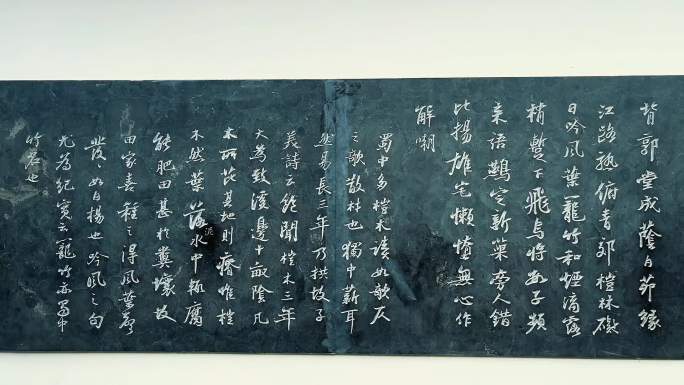 背郭堂成蔭白茆緣
江路熟俯青郊榿林礙
日吟風葉籠竹和煙滴露
梢暫下飛烏將數子頻
來語鷰定新巢旁人錯
比揚雄宅懶惰無心作
解嘲
蜀中多榿木讀如欹仄
之欹散材也獨中薪耳
然易長三年乃拱故子
美詩云飽聞榿木三年
大為致溪邊十畝陰凡
木所芘其地則瘠惟榿
不然葉落泥水中輒腐
能肥田甚於糞壤故
田家喜種之得風葉聲
發々如白楊也吟風之句
尤為紀實云籠竹亦蜀中
竹名也